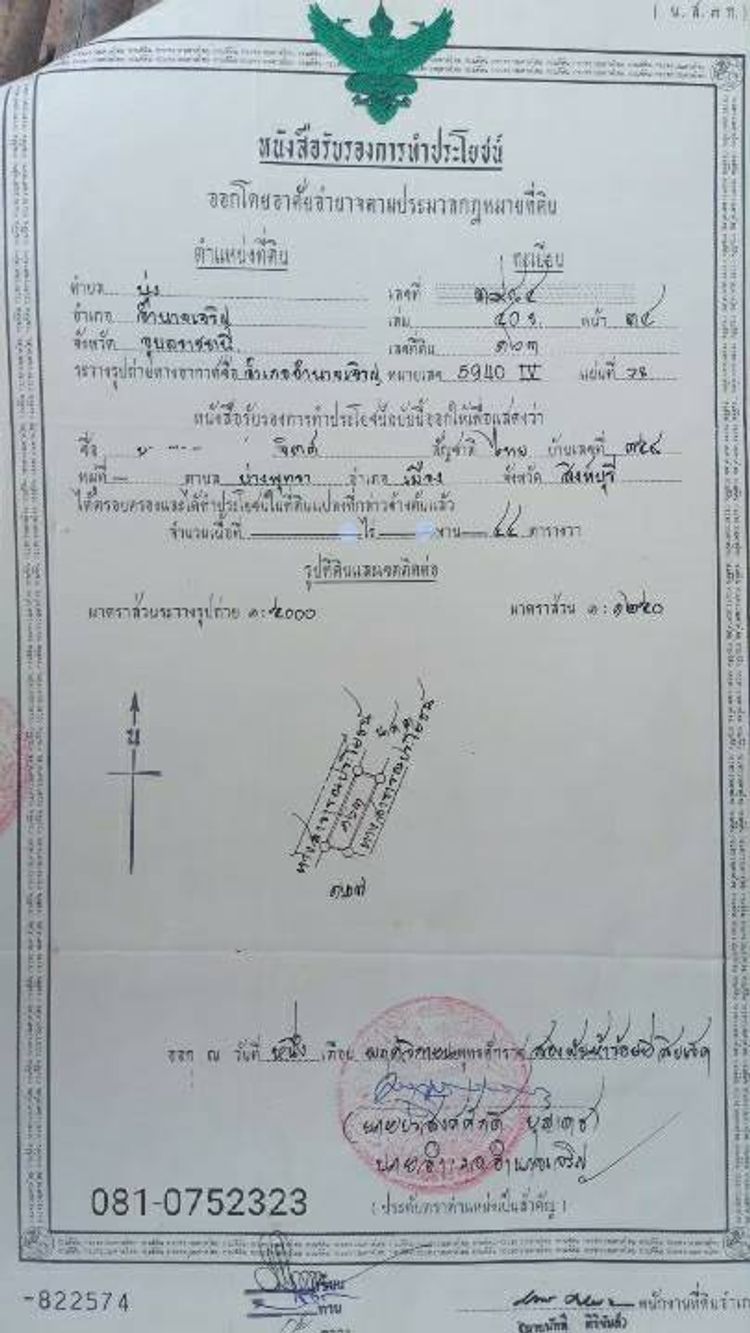 ( น.ส.๓ ก.)
หนังสือรับรองการทำประโยชน์
ออกโดยอาศัยอำนาจตามประมวลกฎหมายที่ดิน
ตำแหน่งที่ดิน ทะเบียน
ตำบล บุ่ง เลขที่
อำเภอ อำนาจเจริญ เล่ม ๔๐ ข. หน้า ๓๔
จังหวัด อุบลราชธานี เลขที่ดิน ๑๒๓
ระวางรูปถ่ายทางอากาศชื่อ อำเภออำนาจเจริญ หมายเลข 5940 IV แผ่นที่ 78
หนังสือรับรองการทำประโยชน์ฉบับนี้ออกให้เพื่อแสดงว่า
ชื่อ จิตต์ สัญชาติ ไทย บ้านเลขที่
หมู่ที่ — ตำบล บางพุทรา อำเภอ เมือง จังหวัด สิงห์บุรี
ได้ครอบครองและได้ทำประโยชน์ในที่ดินแปลงที่กล่าวข้างต้นแล้ว
จำนวนเนื้อที่ ไร่ งาน ๔๔ ตารางวา
รูปที่ดินและเขตติดต่อ
มาตราส่วนระวางรูปถ่าย ๑:๕๐๐๐ มาตราส่วน ๑:๑๒๕๐
น
ทางสาธารณประโยชน์
ทางสาธารณประโยชน์
๑๒๓
๑๒๗
ออก ณ วันที่ หนึ่ง เดือน พฤศจิกายน พุทธศักราช สองพันห้าร้อยยี่สิบเจ็ด
นายอำเภออำนาจเจริญ
081-0752323
( ประทับตราตำแหน่งเป็นสำคัญ )
-822574
เขียน
ทาน
ตรวจ
พนักงานที่ดินอำเภอ